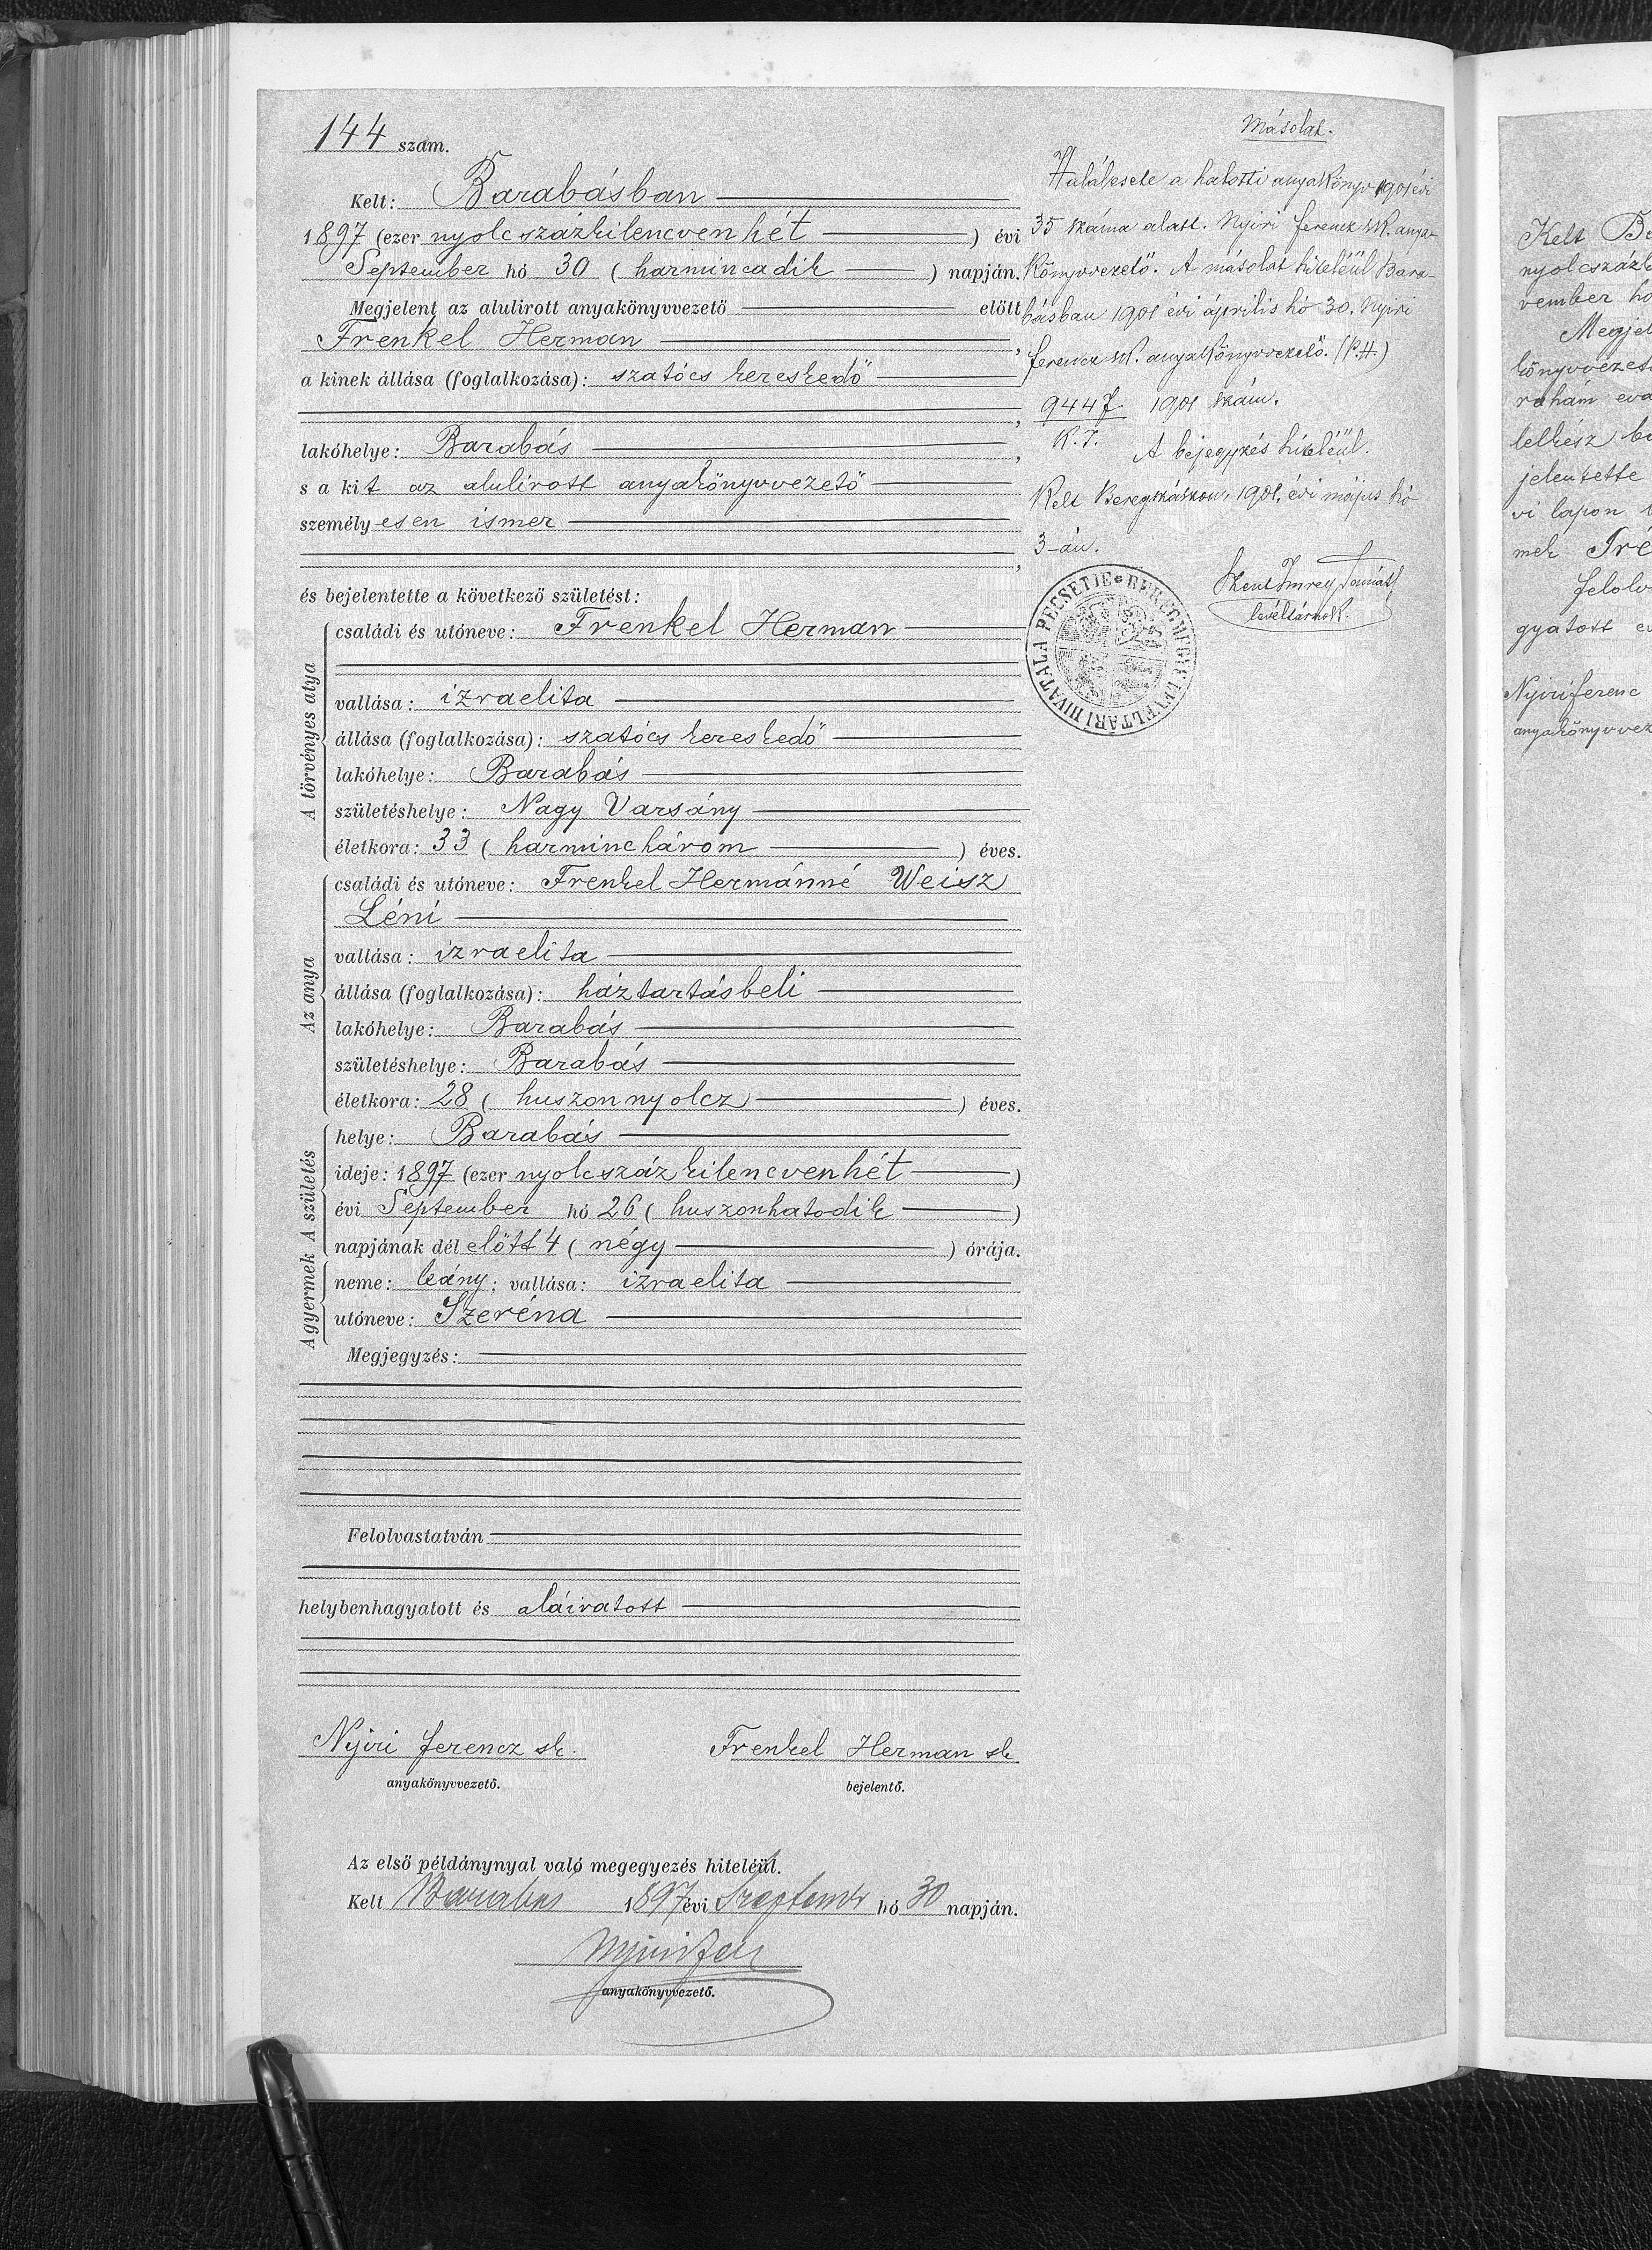 144 szám.
Kelt: Barabásban
1897 (ezer nyolcszázkilencvenhét ) évi
September hó 30 ( harmincadik ) napján.
Megjelent az alulirott anyakönyvvezető előtt
Frenkel Herman ,
a kinek állása (foglalkozása): szatócs kereskedő
,
lakóhelye: Barabás ,
s a kit az alulirott anyakönyvvezető
személyesen ismer
,
és bejelentette a következő születést:
A törvényes atya
családi és utóneve: Frenkel Herman
vallása: izraelita
állása (foglalkozása): szatócs kereskedő
lakóhelye: Barabás
születéshelye: Nagy Varsány
életkora: 33 ( harminchárom ) éves.
Az anya
családi és utóneve: Frenkel Hermánné Weisz
Léni
vallása: izraelita
állása (foglalkozása): háztartásbeli
lakóhelye: Barabás
születéshelye: Barabás
életkora: 28 ( huszonnyolcz ) éves.
A születés
helye: Barabás
ideje: 1897 (ezer nyolcszáz kilencvenhét )
évi September hó 26 ( huszonhatodik )
napjának dél előtt 4 ( négy ) órája.
A gyermek
neme: leány; vallása: izraelita
utóneve: Szeréna
Megjegyzés:
Felolvastatván
helybenhagyatott és aláiratott
Nyiri ferencz sk. Frenkel Herman sk
anyakönyvvezető. bejelentő.
Az első példánynyal való megegyezés hiteléül.
Kelt Barabas 1897 évi Szeptember hó 30 napján.
Nyiri fer
anyakönyvvezető.
Másolat.
Halálesete a halotti anyakönyv 1901 évi
35 száma alatt. Nyiri ferencz sk. anya-
könyvvezető. A másolat hiteléül Bara-
básban 1901 évi április hó 30. Nyiri
ferencz sk. anyakönyvvezető. (P.H.)
9447 1901 szám.
K.I.
A bejegyzés hiteléül.
Kelt Beregszászon, 1901. évi május hó
3-án.
Szent Imrey
levéltárnok.
BEREGMEGYE LEVÉLTÁRI HIVATALA PECSÉTJE
Kelt
nyolcszázk
vember hó
Megjel
könyvvezet
rahám
lelkész
jelentette
vi lapon
mek
felolv
gyatott
Nyiri ferenc
anyakönyvvez